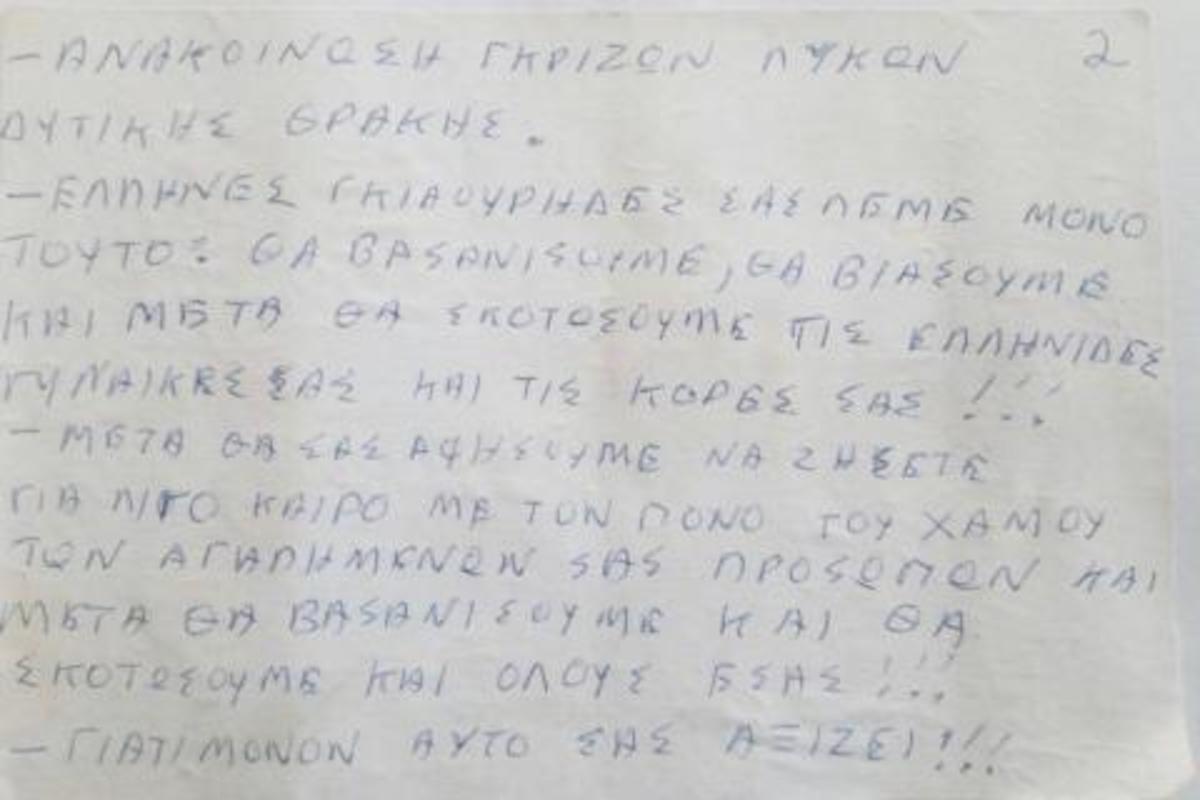 – ΑΝΑΚΟΙΝΩΣΗ ΓΚΡΙΖΩΝ ΛΥΚΩΝ 2
ΔΥΤΙΚΗΣ ΘΡΑΚΗΣ.
– ΕΛΛΗΝΕΣ ΓΚΙΑΟΥΡΗΔΕΣ ΣΑΣ ΛΕΜΕ ΜΟΝΟ
ΤΟΥΤΟ: ΘΑ ΒΑSΑΝΙSΟΥΜΕ, ΘΑ ΒΙΑΣΟΥΜΕ
ΚΑΙ ΜΕΤΑ ΘΑ ΣΚΟΤΟΣΟΥΜΕ ΤΙΣ ΕΛΛΗΝΙΔΕΣ
ΓΥΝΑΙΚΕΣ ΣΑΣ ΚΑΙ ΤΙΣ ΚΟΡΕΣ ΣΑΣ !!!
– ΜΕΤΑ ΘΑ ΣΑΣ ΑΦΗΣΟΥΜΕ ΝΑ ΖΗΣΕΤΕ
ΓΙΑ ΛΙΓΟ ΚΑΙΡΟ ΜΕ ΤΟΝ ΠΟΝΟ ΤΟΥ ΧΑΜΟΥ
ΤΩΝ ΑΓΑΠΗΜΕΝΩΝ SΑS ΠΡΟSΩΠΩΝ ΚΑΙ
ΜΕΤΑ ΘΑ ΒΑSΑΝΙΣΟΥΜΕ ΚΑΙ ΘΑ
ΣΚΟΤΩΣΟΥΜΕ ΚΑΙ ΟΛΟΥΣ ΕΣΑΣ !!!
– ΓΙΑΤΙ ΜΟΝΟΝ ΑΥΤΟ ΣΑΣ ΑΞΙΖΕΙ !!!